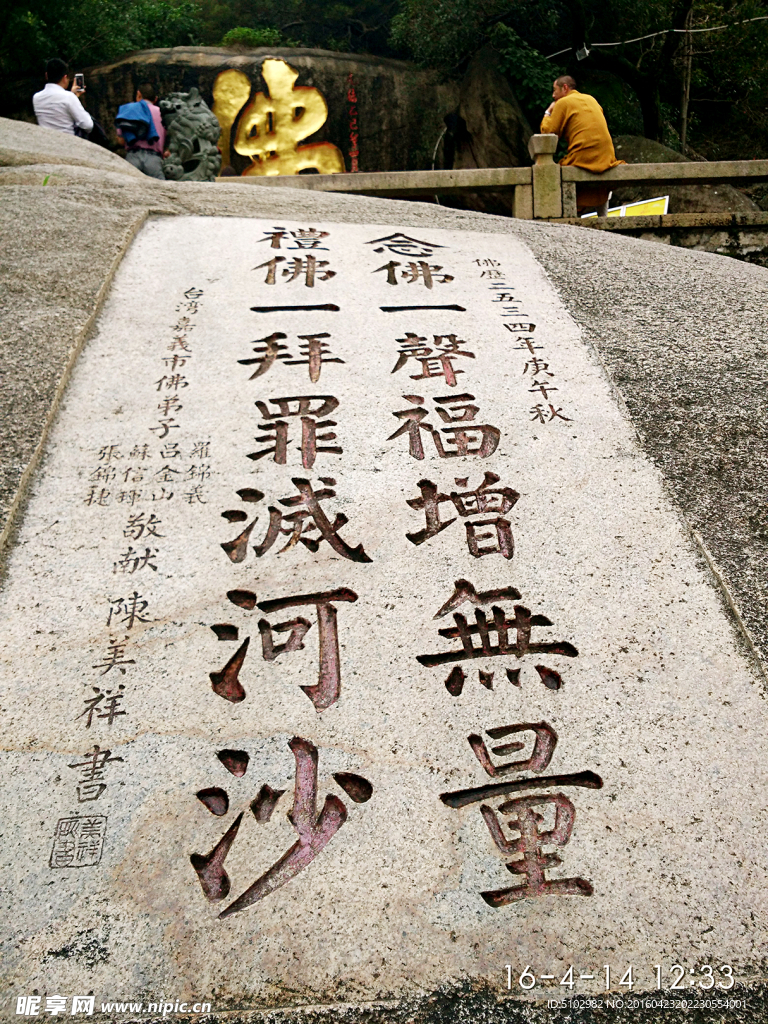 佛
佛曆二五三四年庚午秋
念佛一聲福增無量
禮佛一拜罪滅河沙
台灣嘉義市佛弟子
羅錦義
呂金山
蘇信璋
張錦捷
敬献
陳美祥書
16-4-14 12:33
昵享网 www.nipic.cn
ID:5102982 NO:20160423202230554001